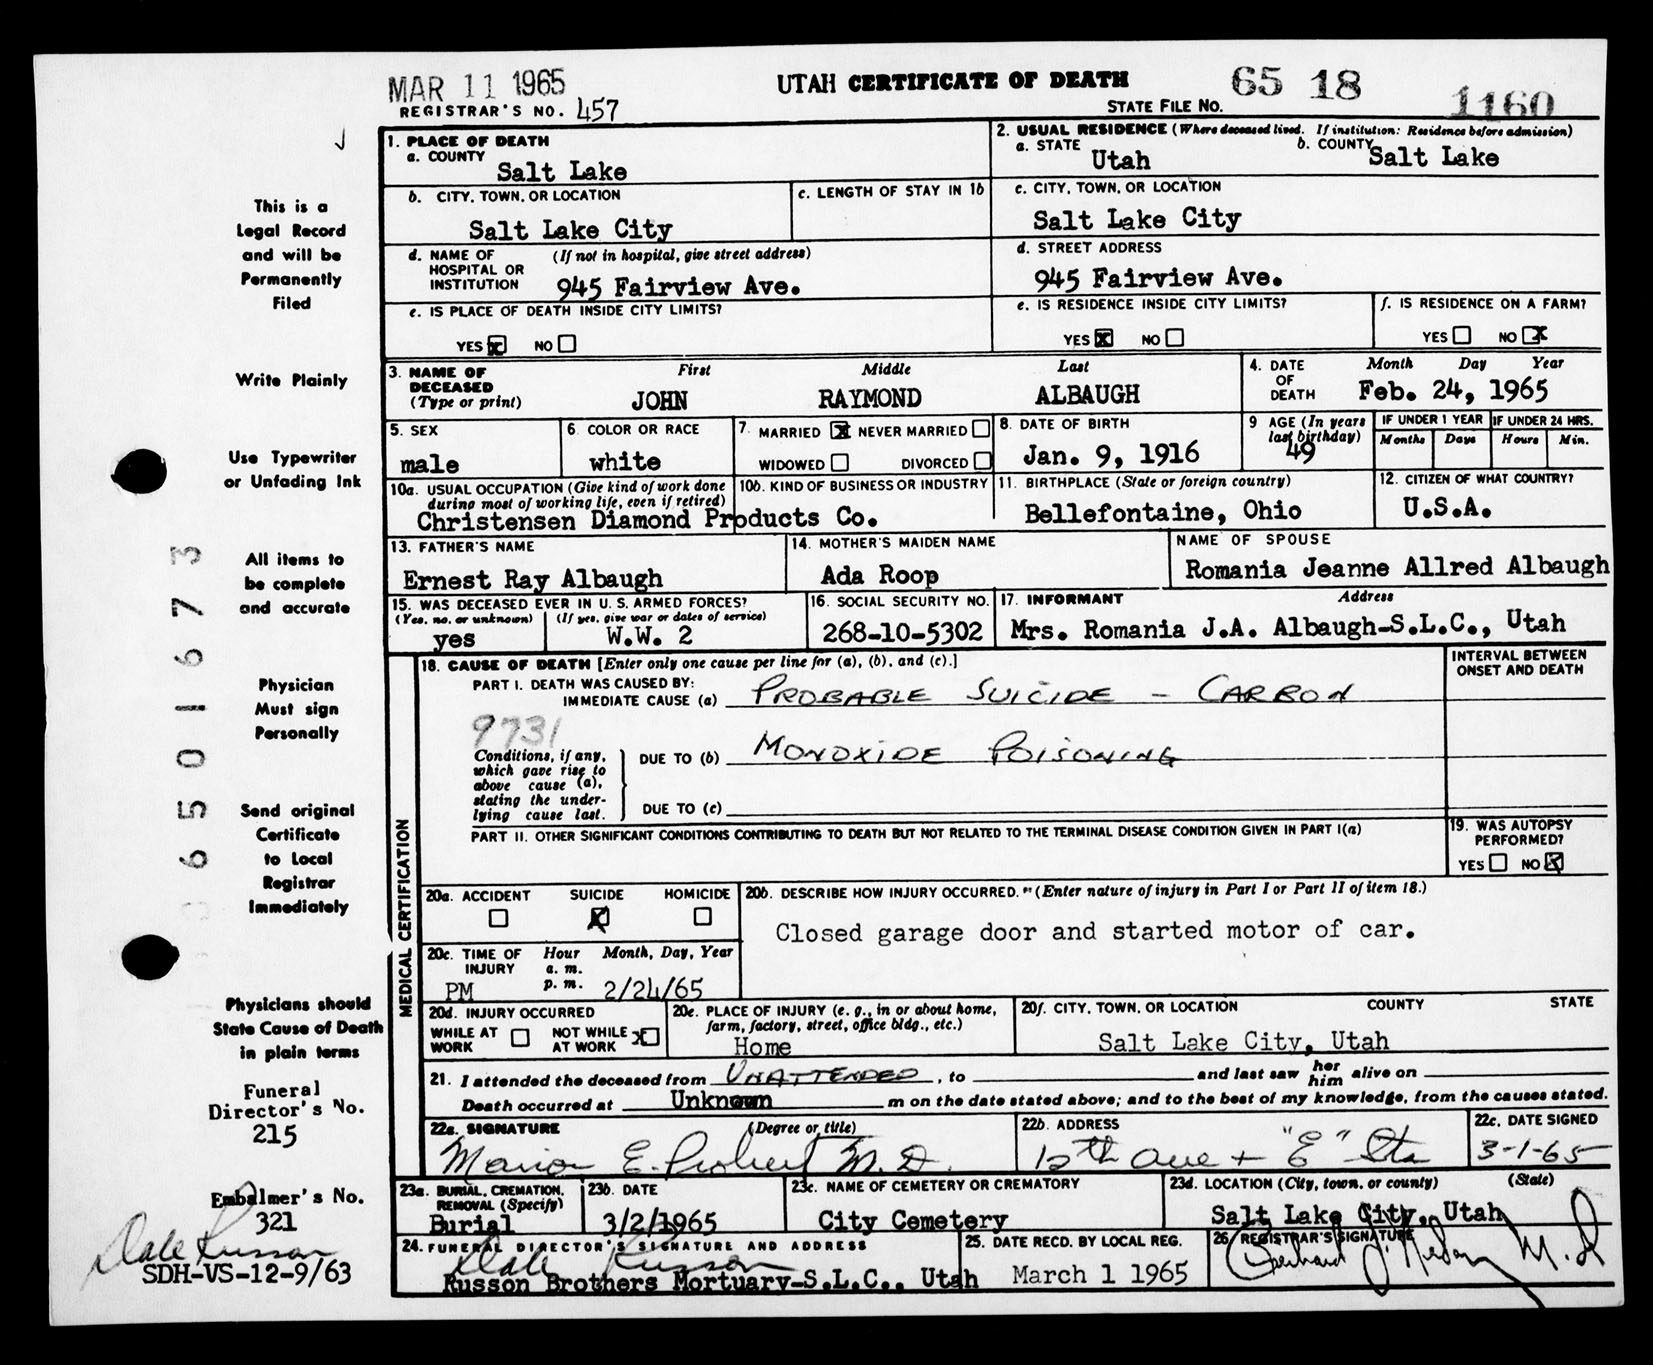 MAR 11 1965
UTAH CERTIFICATE OF DEATH
65 18 1160
REGISTRAR'S NO. 457
STATE FILE NO.
This is a
Legal Record
and will be
Permanently
Filed
Write Plainly
Use Typewriter
or Unfading Ink
All items to
be complete
and accurate
Physician
Must sign
Personally
Send original
Certificate
to Local
Registrar
Immediately
Physicians should
State Cause of Death
in plain terms
Funeral
Director's No.
215
Embalmer's No.
321
Dale Russon
SDH-VS-12-9/63
6501673
1. PLACE OF DEATH
a. COUNTY
Salt Lake
2. USUAL RESIDENCE (Where deceased lived. If institution: Residence before admission)
a. STATE Utah b. COUNTY Salt Lake
b. CITY, TOWN, OR LOCATION
Salt Lake City
c. LENGTH OF STAY IN 1b
c. CITY, TOWN, OR LOCATION
Salt Lake City
d. NAME OF (If not in hospital, give street address)
HOSPITAL OR
INSTITUTION 945 Fairview Ave.
d. STREET ADDRESS
945 Fairview Ave.
e. IS PLACE OF DEATH INSIDE CITY LIMITS?
YES x NO
e. IS RESIDENCE INSIDE CITY LIMITS?
YES x NO
f. IS RESIDENCE ON A FARM?
YES NO x
3. NAME OF First Middle Last
DECEASED
(Type or print) JOHN RAYMOND ALBAUGH
4. DATE Month Day Year
OF
DEATH Feb. 24, 1965
5. SEX
male
6. COLOR OR RACE
white
7. MARRIED x NEVER MARRIED
WIDOWED DIVORCED
8. DATE OF BIRTH
Jan. 9, 1916
9 AGE (In years
last birthday)
49
IF UNDER 1 YEAR IF UNDER 24 HRS.
Months Days Hours Min.
10a. USUAL OCCUPATION (Give kind of work done
during most of working life, even if retired)
10b. KIND OF BUSINESS OR INDUSTRY
Christensen Diamond Products Co.
11. BIRTHPLACE (State or foreign country)
Bellefontaine, Ohio
12. CITIZEN OF WHAT COUNTRY?
U.S.A.
13. FATHER'S NAME
Ernest Ray Albaugh
14. MOTHER'S MAIDEN NAME
Ada Roop
NAME OF SPOUSE
Romania Jeanne Allred Albaugh
15. WAS DECEASED EVER IN U. S. ARMED FORCES?
(Yes, no, or unknown) (If yes, give war or dates of service)
yes W.W. 2
16. SOCIAL SECURITY NO.
268-10-5302
17. INFORMANT Address
Mrs. Romania J.A. Albaugh-S.L.C., Utah
MEDICAL CERTIFICATION
18. CAUSE OF DEATH [Enter only one cause per line for (a), (b), and (c).]
INTERVAL BETWEEN
ONSET AND DEATH
PART I. DEATH WAS CAUSED BY:
IMMEDIATE CAUSE (a) PROBABLE SUICIDE - CARBON
9731
Conditions, if any,
which gave rise to
above cause (a),
stating the under-
lying cause last.
DUE TO (b) MONOXIDE POISONING
DUE TO (c)
PART II. OTHER SIGNIFICANT CONDITIONS CONTRIBUTING TO DEATH BUT NOT RELATED TO THE TERMINAL DISEASE CONDITION GIVEN IN PART I(a)
19. WAS AUTOPSY
PERFORMED?
YES NO x
20a. ACCIDENT SUICIDE HOMICIDE
x
20b. DESCRIBE HOW INJURY OCCURRED. (Enter nature of injury in Part I or Part II of item 18.)
Closed garage door and started motor of car.
20c. TIME OF Hour Month, Day, Year
INJURY a. m.
PM p. m. 2/24/65
20d. INJURY OCCURRED
WHILE AT NOT WHILE x
WORK AT WORK
20e. PLACE OF INJURY (e. g., in or about home,
farm, factory, street, office bldg., etc.)
Home
20f. CITY, TOWN, OR LOCATION COUNTY STATE
Salt Lake City, Utah
21. I attended the deceased from UNATTENDED, to and last saw her him alive on
Death occurred at Unknown m on the date stated above; and to the best of my knowledge, from the causes stated.
22a. SIGNATURE (Degree or title)
Marion E. Probert M.D.
22b. ADDRESS
12th Ave + "E" Sts
22c. DATE SIGNED
3-1-65
23a. BURIAL, CREMATION,
REMOVAL (Specify)
Burial
23b. DATE
3/2/1965
23c. NAME OF CEMETERY OR CREMATORY
City Cemetery
23d. LOCATION (City, town, or county) (State)
Salt Lake City, Utah
24. FUNERAL DIRECTOR'S SIGNATURE AND ADDRESS
Dale Russon
Russon Brothers Mortuary-S.L.C., Utah
25. DATE RECD. BY LOCAL REG.
March 1 1965
26 REGISTRAR'S SIGNATURE
M.D